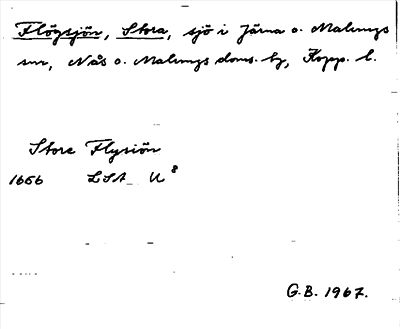 Flögsjön, Stora, sjö i Järna o. Malungs
snr, Nås o. Malungs doms. hg, Kopp. l.
Store Flysiön
1656 LSA U⁸
G.B. 1967.